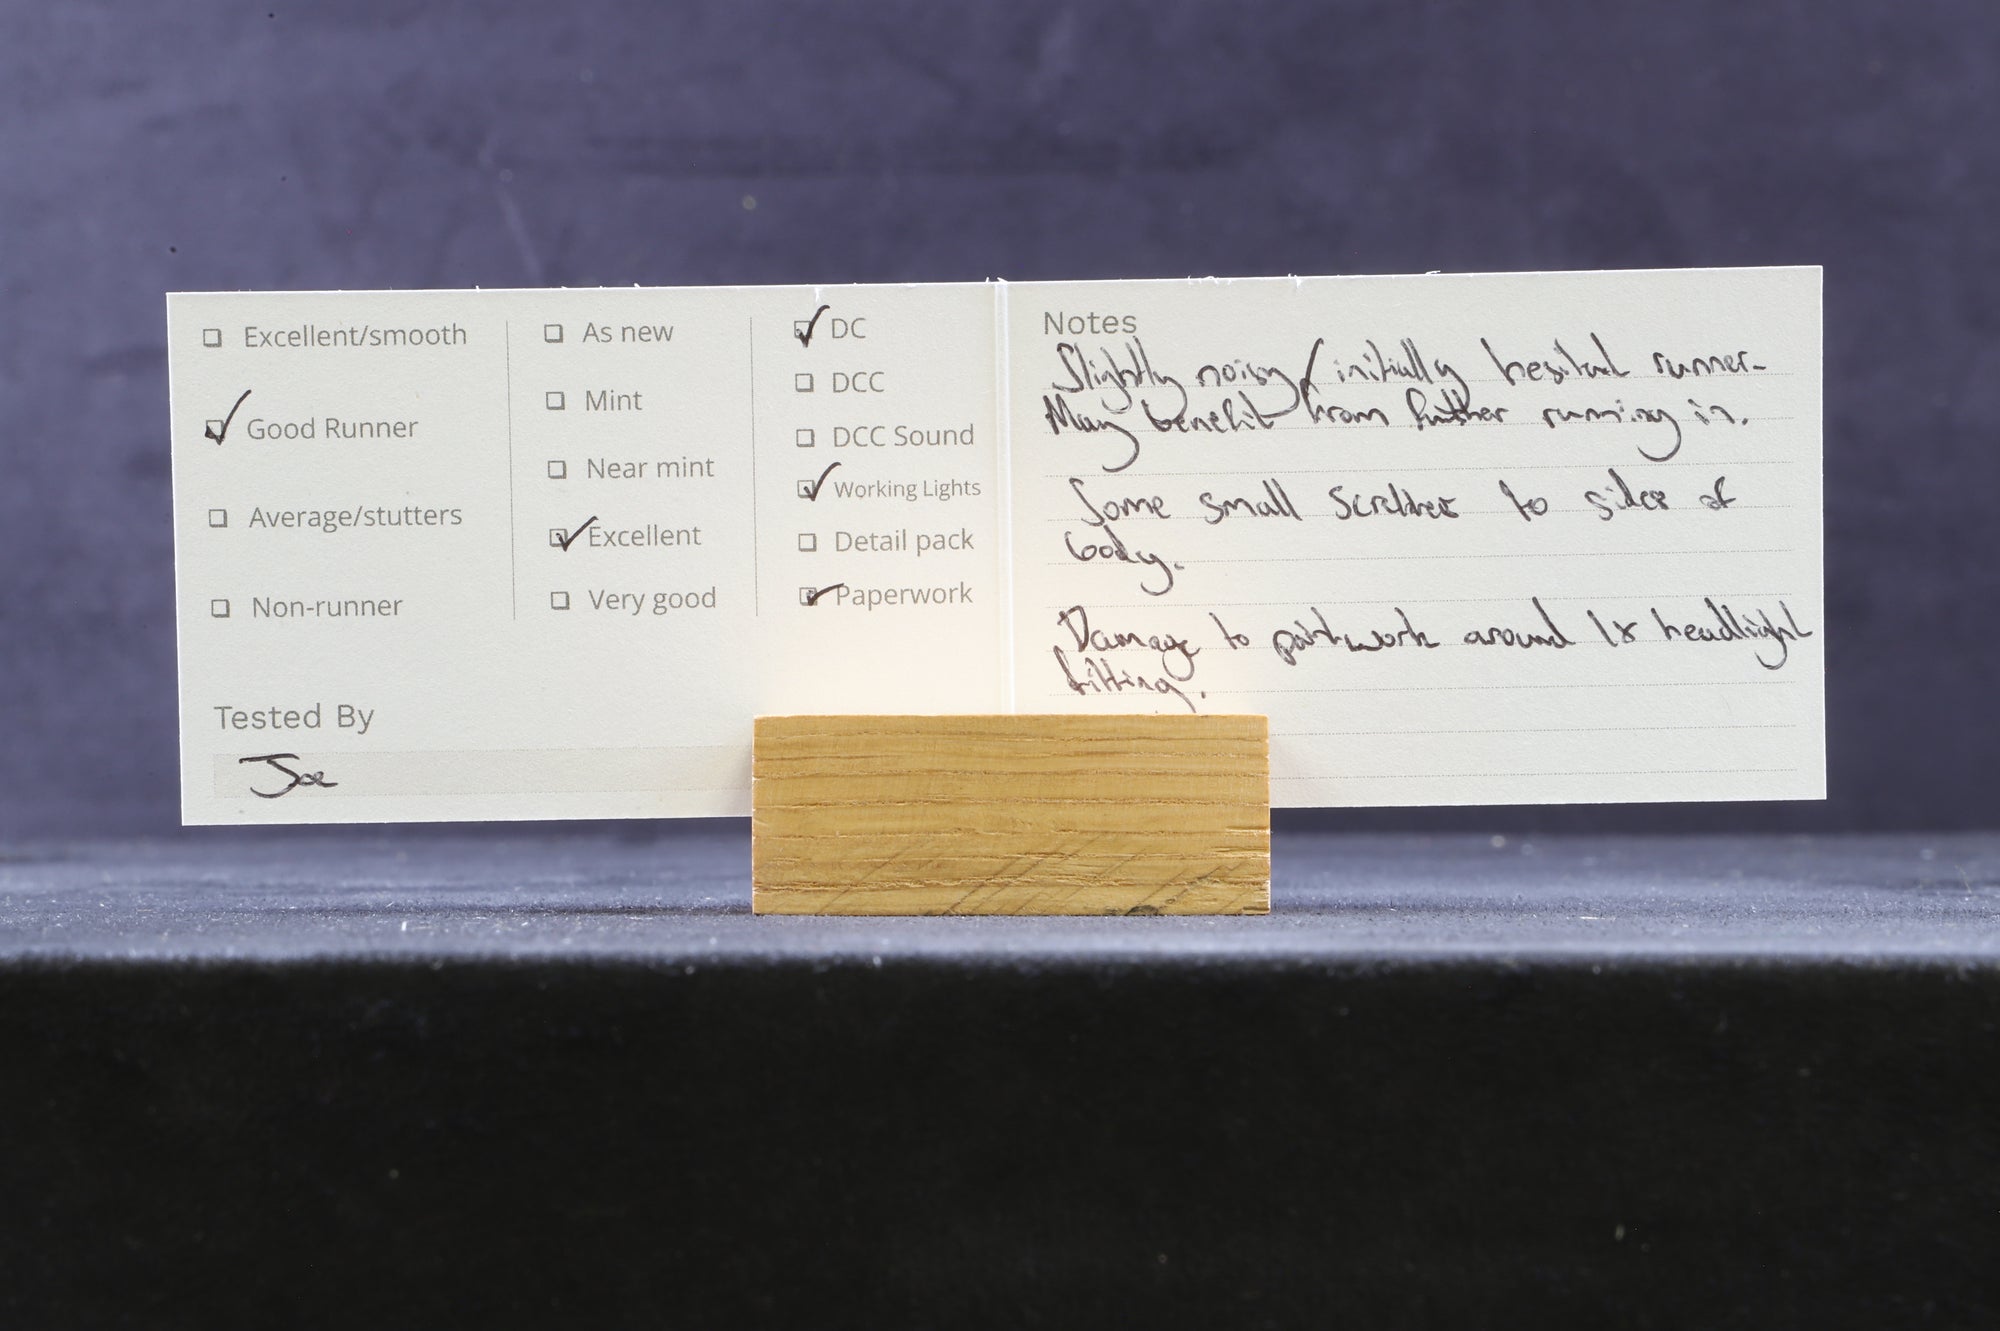 ☐ Excellent/smooth
☑ Good Runner
☐ Average/stutters
☐ Non-runner
☐ As new
☐ Mint
☐ Near mint
☑ Excellent
☐ Very good
☑ DC
☐ DCC
☐ DCC Sound
☑ Working Lights
☐ Detail pack
☑ Paperwork
Tested By
Joe
Notes
Slightly noisy/initially hesitant runner-
May benefit from further running in.
Some small scratches to sides of
body.
Damage to paintwork around 1x headlight
fitting.